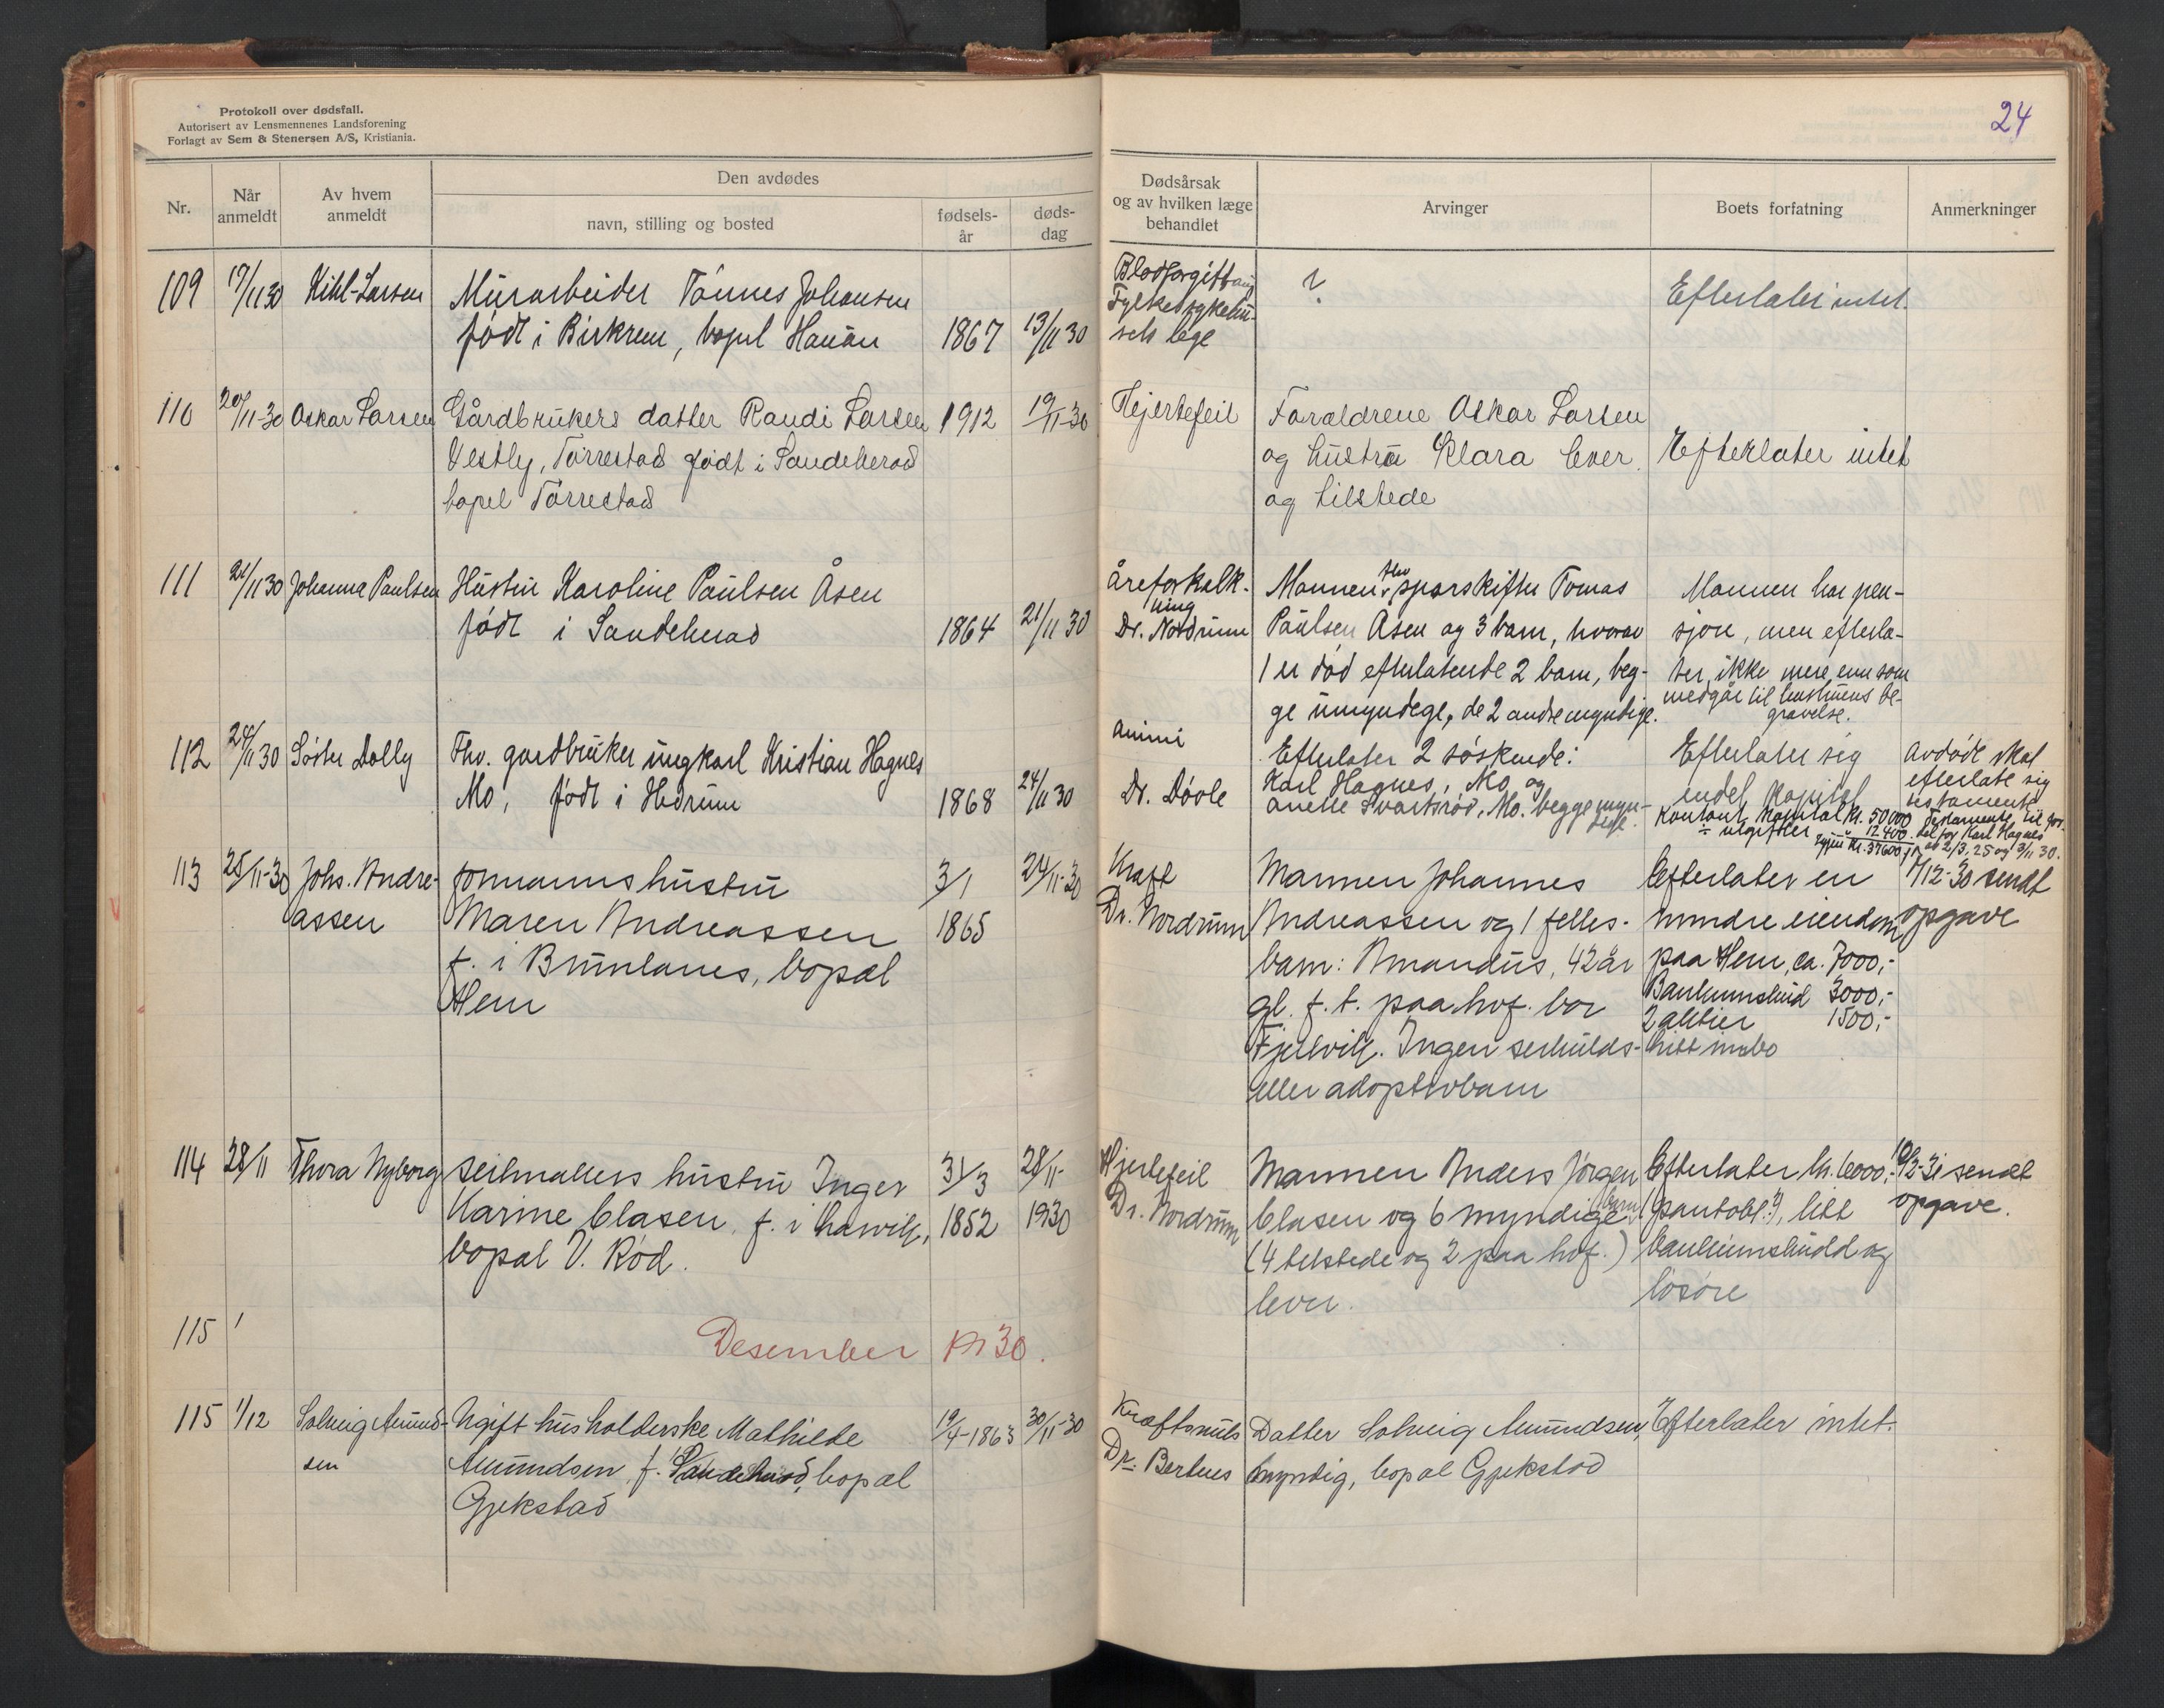 Protokoll over dødsfall.
Autorisert av Lensmennenes Landsforening
Forlagt av Sem & Stenersen A/S, Kristiania.
24
Nr.
Når anmeldt
Av hvem anmeldt
Den avdødes
navn, stilling og bosted
fødsels-år
døds-dag
Dødsårsak
og av hvilken læge
behandlet
Arvinger
Boets forfatning
Anmerkninger
109 17/11 30 Kihl-Larsen Murarbeider Tønnes Johansen
født i Birkrem, bopel Hauan 1867 13/11 30
Blodforgiftning
Fylkessykehu-
sets lege
?
Efterlater intet.
110 20/11-30 Oskar Larsen Gårdbrukers datter Randi Larsen 1912 19/11-30
Vestly, Tørrestad født i Sandeherad
bopel Tørrestad
Hjertefeil
Forældrene Oskar Larsen
og hustru Klara lever
og tilstede
Efterlater intet
111 21/11 30 Johanna Paulsen Hustru Karoline Paulsen Åsen
født i Sandeherad 1864 21/11 30
Åreforkalk-
ning
Dr. Nordrum
Mannen fhv sporskifter Tomas
Paulsen Åsen og 3 barn, hvorav
1 er død efterlatende 2 barn, beg-
ge umyndege, de 2 andre myndige.
Mannen har pen-
sjon, men efterla-
ter ikke mere enn som
medgår til hustruens be-
gravelse.
112 24/11 30 Søster Dolly Fhv. gardbruker ungkarl Kristian Hagnes
Mo, født i Hedrum 1868 24/11 30
Dr. Dåvle
Efterlater 2 søskende:
Karl Hagnes, Mo og
Anette Svartsrød, Mo. begge myn-
dige.
Efterlater sig
endel kapital
Kontant kapital kr. 50000
÷ utgifter 12400
kr. 37600
Avdøde skal
efterlate sig
testamente
Testamente til for-
del for Karl Hagnes
av 2/3. 25 og 3/11 30.
113 25/11-30 Johs. Andre-
assen
Formanns hustru
Maren Andreassen
f. i Brunlanes, bopæl
Hem
3/1
1865
24/11-30
Kræft
Dr. Nordrum
Mannen Johannes
Andreassen og 1 felles-
barn: Amandus, 42 år
gl. f. t. paa hvf. bor
Tjølvik. Ingen serkulds-
eller adoptivbarn
Efterlater en
mindre eiendom
paa Hem, ca. 7000,-
Bankinnskud 3000,-
2 aktier 1500,-
litt innbo
9/12-30 sendt
opgave
114 28/11 Thora Nyborg Seilmakers hustru Inger
Karine Clasen, f. i Larvik,
bopæl V. Rød.
31/3
1852
28/11-
1930
Hjertefeil
Dr. Nordrum
Mannen Anders Jørgen
Clasen og 6 myndige barn
(4 tilstede og 2 paa hvf.)
lever.
Efterlater kr. 6000,-
(pantobl.?), litt
bankinnskudd og
løsøre
19/2-31 sendt
opgave.
115 1
Desember 1930.
115 1/12 Solveig Amund-
sen
Ugift husholderske Mathilde
Amundsen, f. i Sandeherad, bopæl
Gjekstad
19/4-1863 30/11-30
Kræftsvuls
Dr. Bertnes
Datter Solveig Amundsen,
myndig, bopæl Gjekstad
Efterlater intet.